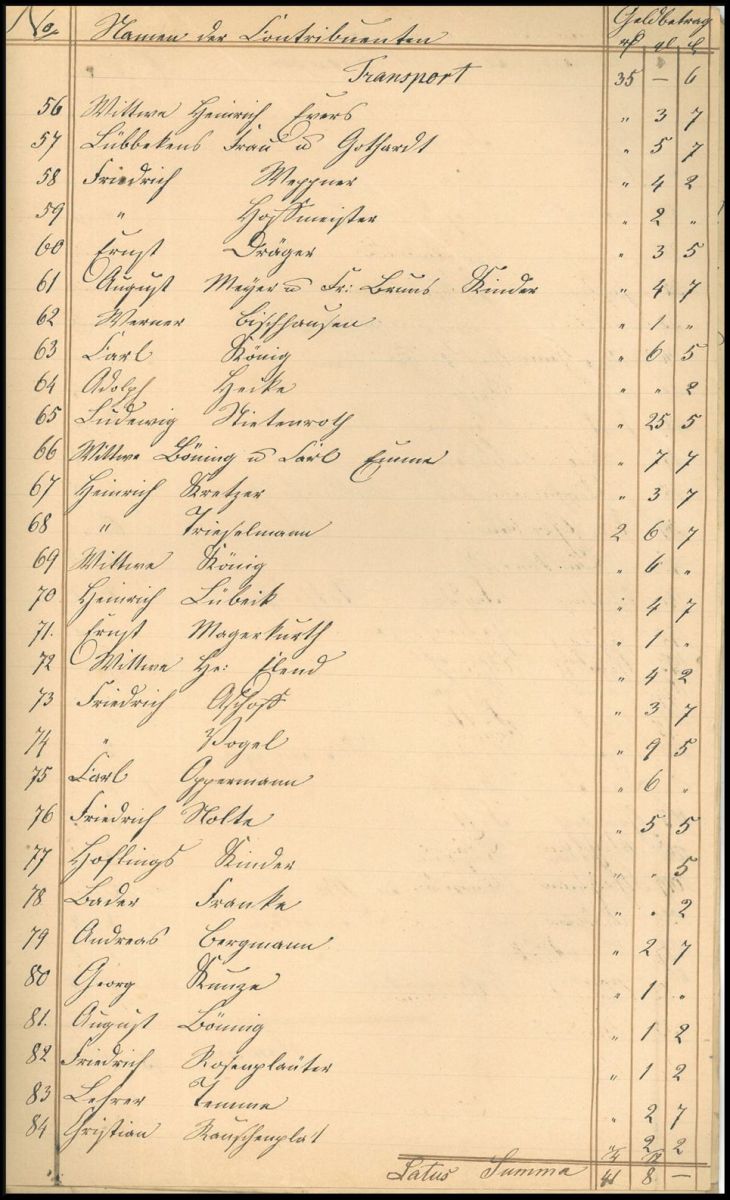 No. Namen der Contribuenten Geldbetrag
Transport 35 — 6
56 Wittwe Heinrich Evers " 3 7
57 Lübbekens Frau u Gothardt " 5 7
58 Friedrich Weppner " 4 2
59 " Hoffmeister " 2 "
60 Ernst Dräger " 3 5
61 August Meyer u Fr: Bruns Kinder " 4 7
62 Werner Bischhausen " 1 "
63 Carl König " 6 5
64 Adolph Heike " " 2
65 Ludewig Stietenroth " 25 5
66 Wittwe Böning u Carl Emme " 7 7
67 Heinrich Kretzer " 3 7
68 " Trieselmann 2 6 7
69 Wittwe König " 6 "
70 Heinrich Lübeck " 4 7
71. Ernst Magerkurth " 1 "
72 Wittwe He: Elend " 4 2
73 Friedrich Aschoff " 3 7
74 " Vogel " 9 5
75 Carl Oppermann " 6 "
76 Friedrich Nolte " 5 5
77 Hoflings Kinder " " 5
78 Bader Franke " " 2
79 Andreas Bergmann " 2 7
80 Georg Kunze " 1 "
81. August Bönnig " 1 2
82 Friedrich Rosenpläuter " 1 2
83 Lehrer Temme " 2 7
84 Christian Rauschenplat " 2 2
Latus Summa 41 8 —